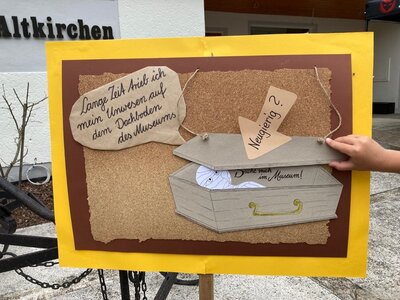 Altkirchen
Lange Zeit trieb ich
mein Unwesen auf
dem Dachboden
des Museums
Neugierig?
Suche mich
im Museum!